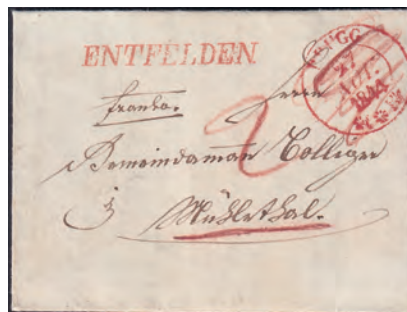 ENTFELDEN
BRUGG
27
NOV.
1844
franko. Herrn
2
Gemeindaman Bolliger
Mühlethal.